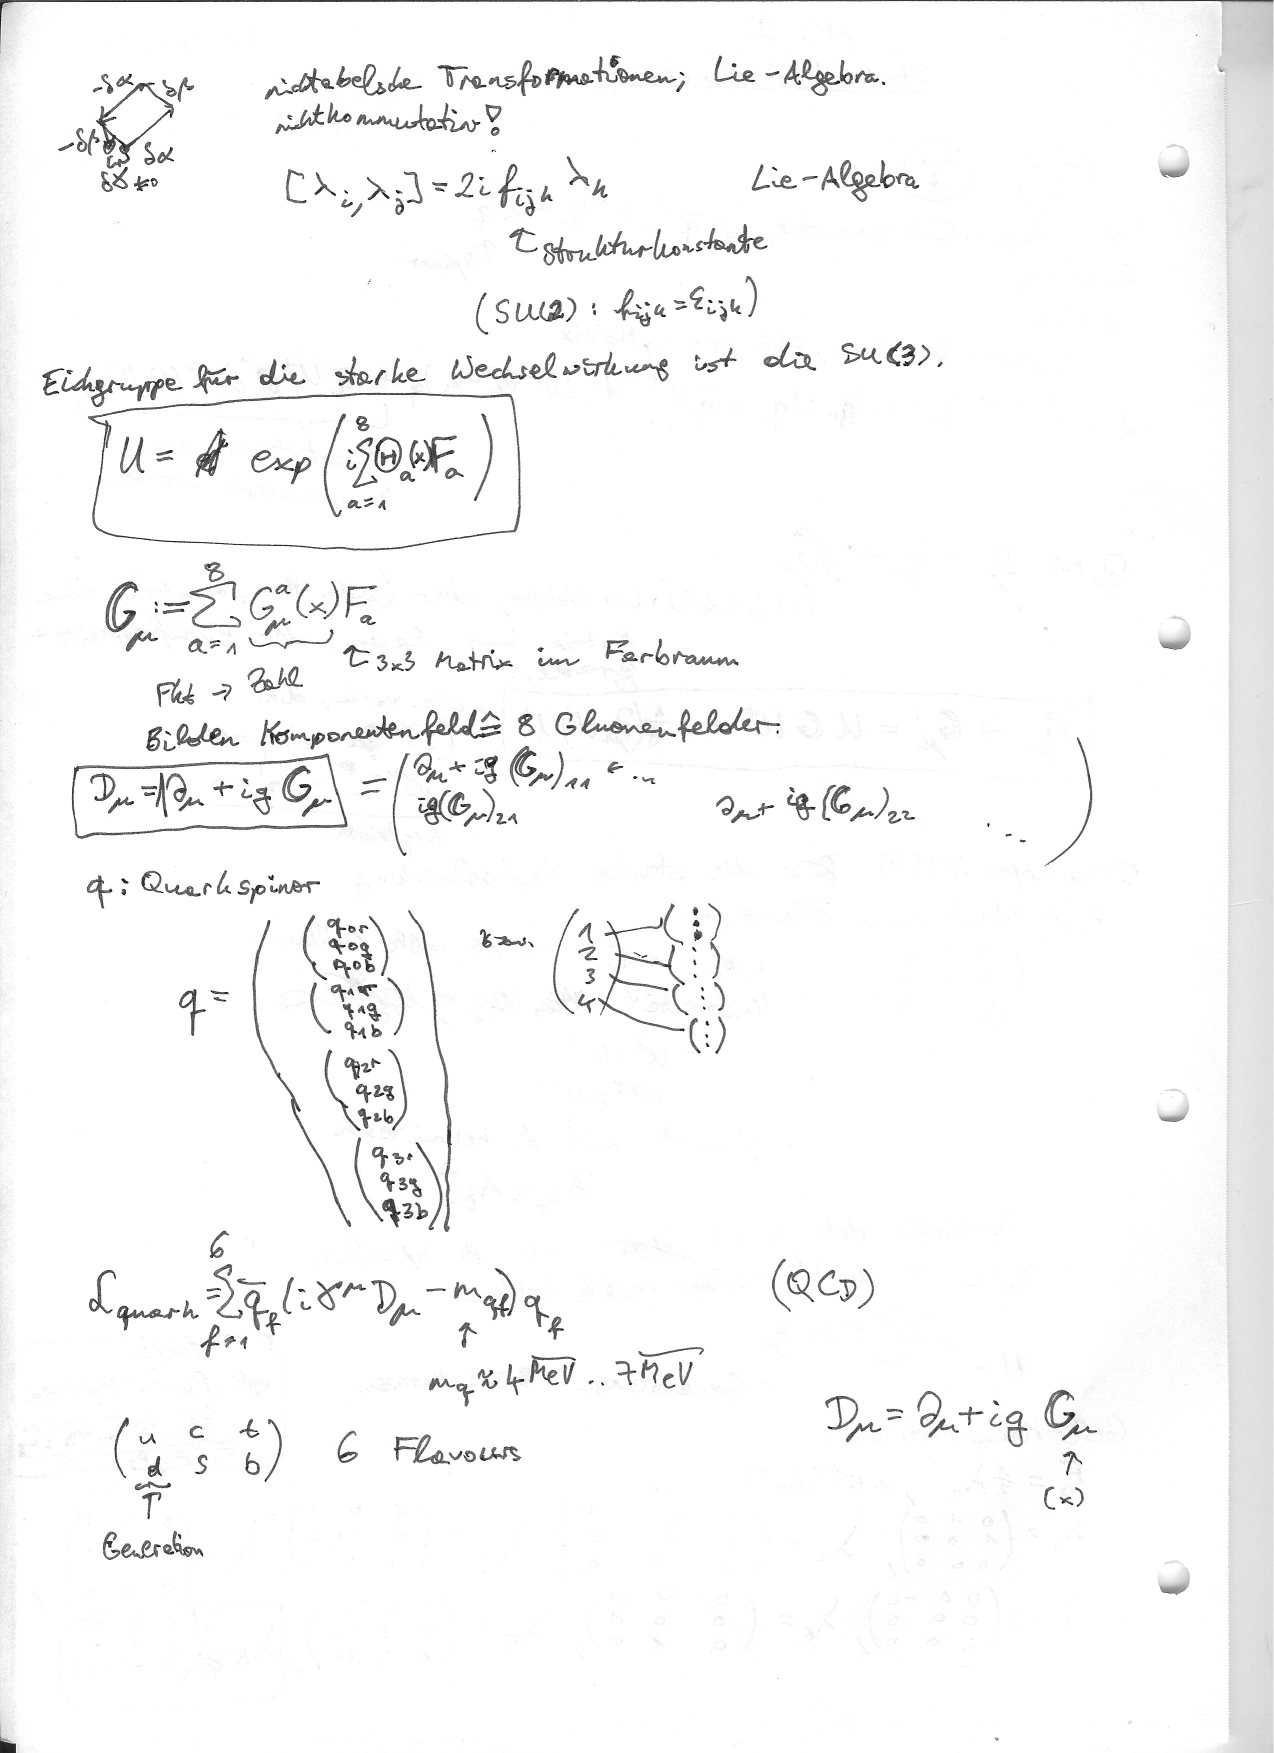 -δα δβ
nichtabelsche Transformationen; Lie-Algebra.
nichtkommutativ!
-δβ δα
δγ ≠0
[λi, λj] = 2i fijk λk Lie-Algebra
↑ Strukturkonstante
(SU(2): fijk = εijk)
Eichgruppe für die starke Wechselwirkung ist die SU(3).
U = exp(i ∑_{a=1}^{8} Θa(x) Fa)
Gμ := ∑_{a=1}^{8} Gμ^a(x) Fa
↑ 3x3 Matrix im Farbraum
Fkt → Zahl
Bilden Komponentenfeld ≙ 8 Gluonenfelder.
Dμ = ∂μ + ig Gμ = ( ∂μ + ig (Gμ)11 ...
ig(Gμ)21 ∂μ + ig (Gμ)22 ... )
q: Quarkspinor
q =
q0r
q0g
q0b
q1r
q1g
q1b
q2r
q2g
q2b
q3r
q3g
q3b
bzw.
1
2
3
4
L_quark = ∑_{f=1}^{6} q̄f (iγ^μ Dμ - m_qf) qf (QCD)
↑
mq ≈ 4 MeV .. 7 MeV
Dμ = ∂μ + ig Gμ
↑
(x)
( u c t
d s b ) 6 Flavours
↑
Generation